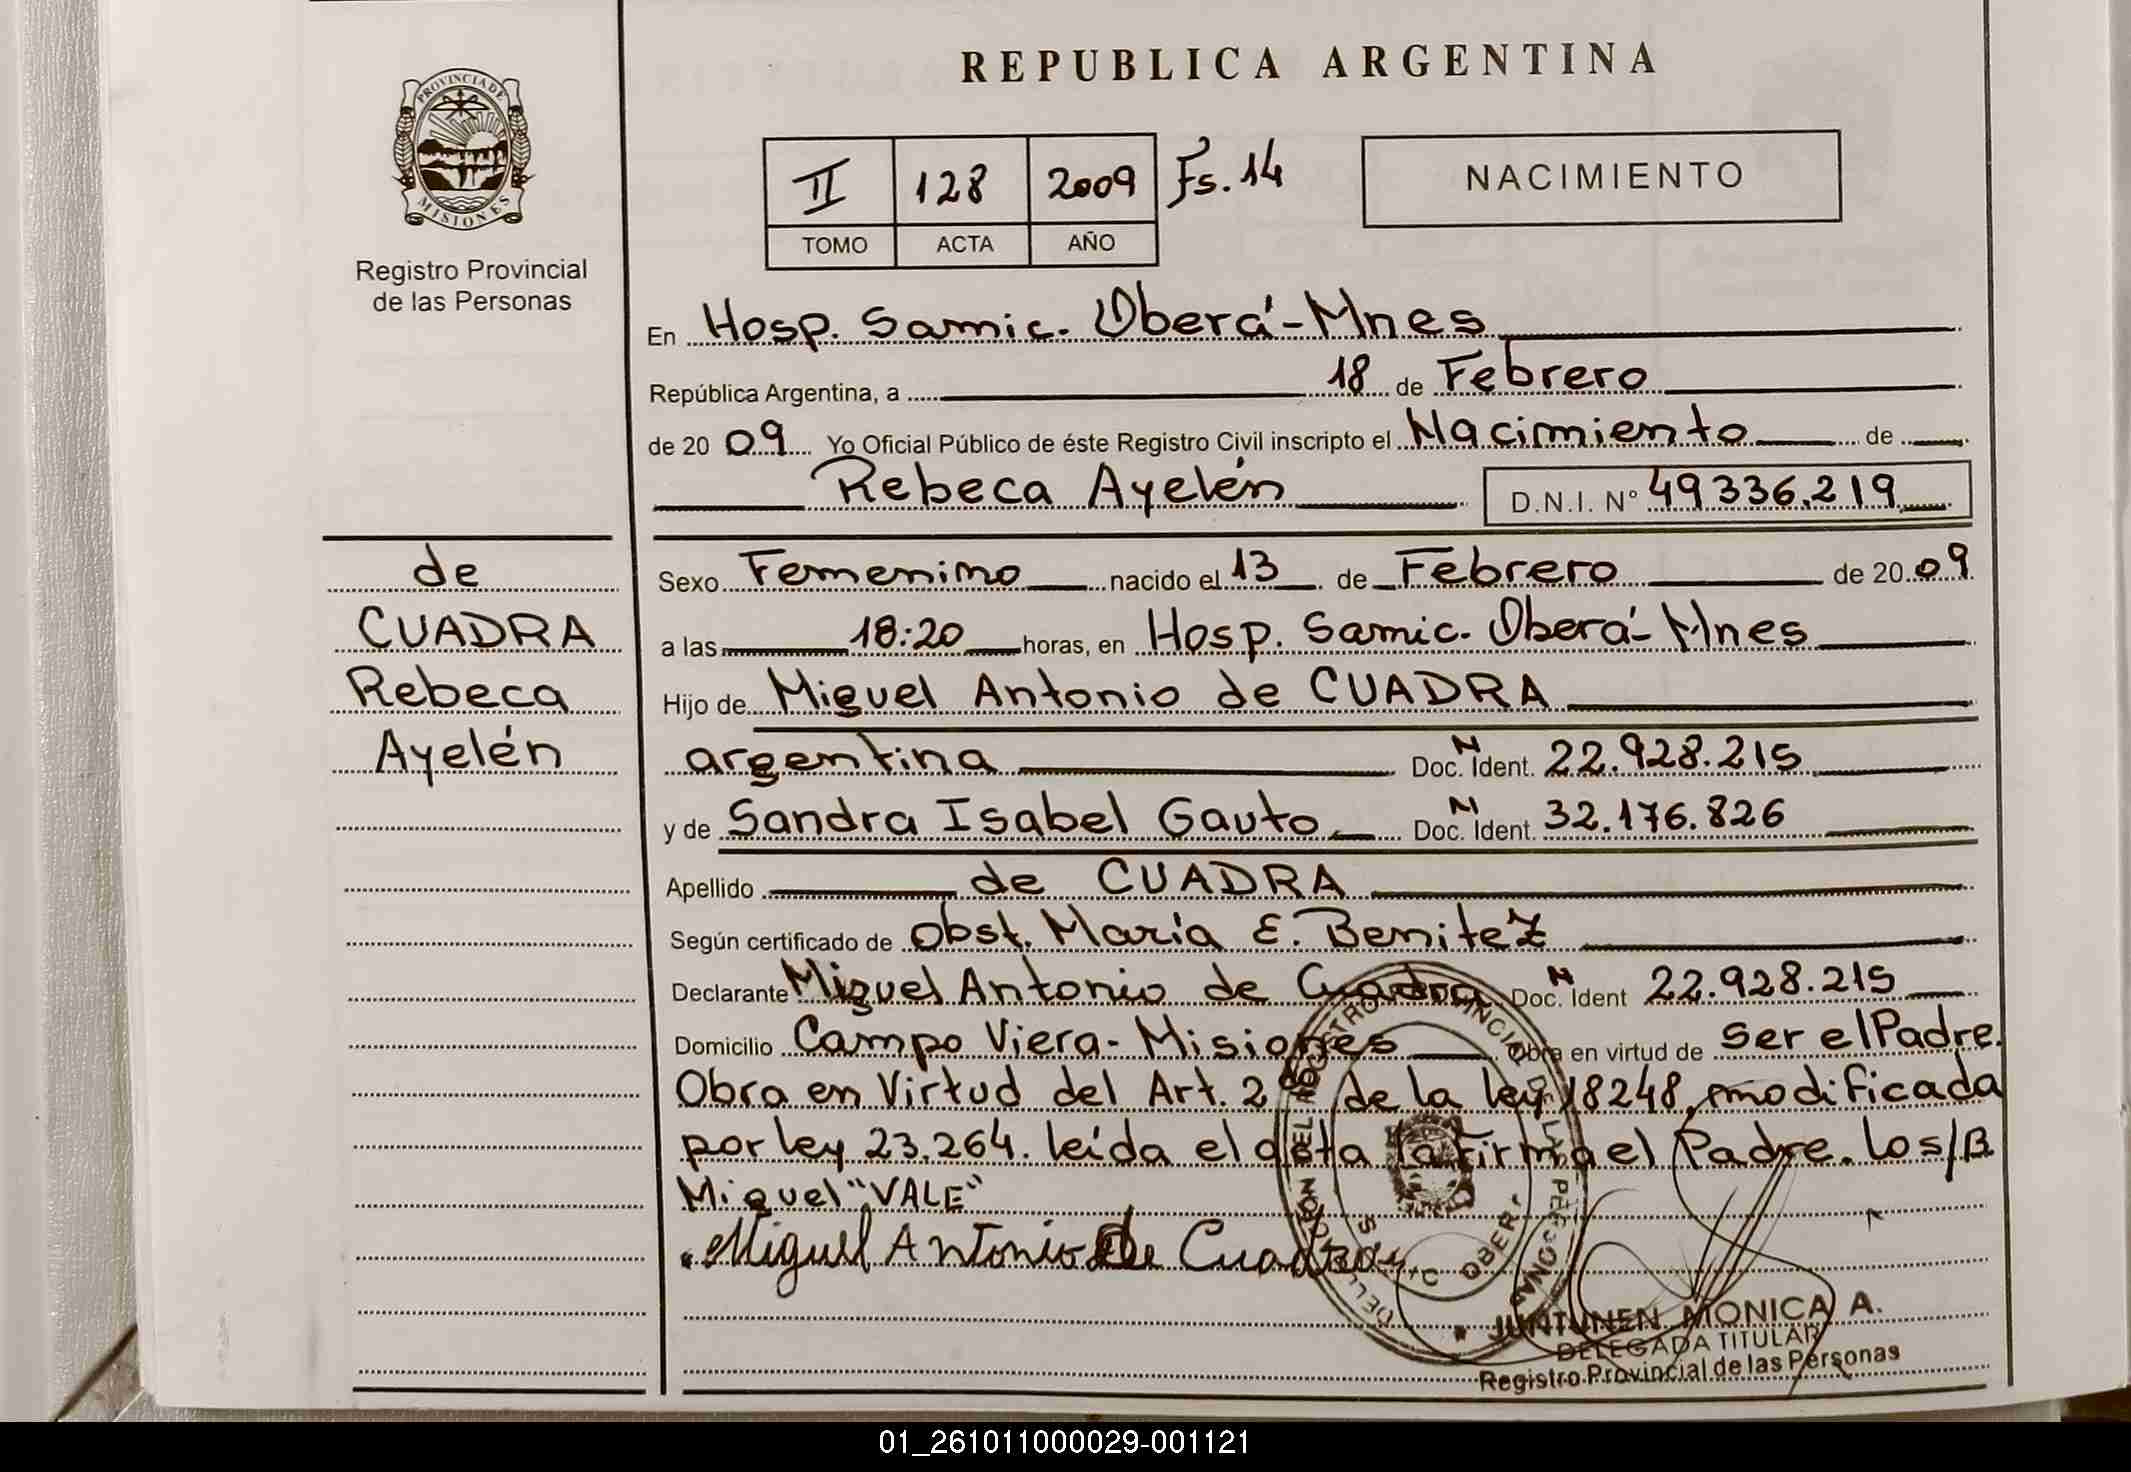 PROVINCIA DE
MISIONES
Registro Provincial
de las Personas
de
CUADRA
Rebeca
Ayelén
REPUBLICA ARGENTINA
II 128 2009 Fs. 14
TOMO ACTA AÑO
NACIMIENTO
En Hosp. Samic. Oberá-Mnes
República Argentina, a 18 de Febrero
de 2009 Yo Oficial Público de éste Registro Civil inscripto el Nacimiento de
Rebeca Ayelén D.N.I. N° 49336.219
Sexo Femenino nacido el 13 de Febrero de 2009
a las 18:20 horas, en Hosp. Samic. Oberá-Mnes
Hijo de Miguel Antonio de CUADRA
argentina Doc. N Ident. 22.928.215
y de Sandra Isabel Gauto Doc. N Ident. 32.176.826
Apellido de CUADRA
Según certificado de Obst. María E. Benitez
Declarante Miguel Antonio de Cuadra Doc. N Ident 22.928.215
Domicilio Campo Viera-Misiones Obra en virtud de ser el Padre.
Obra en Virtud del Art. 2 de la ley 18248, modificada
por ley 23.264. leída el acta la firma el Padre. los/B
Miguel "VALE"
Miguel Antonio De Cuadra
JUNTUNEN MONICA A.
DELEGADA TITULAR
Registro Provincial de las Personas
01_261011000029-001121